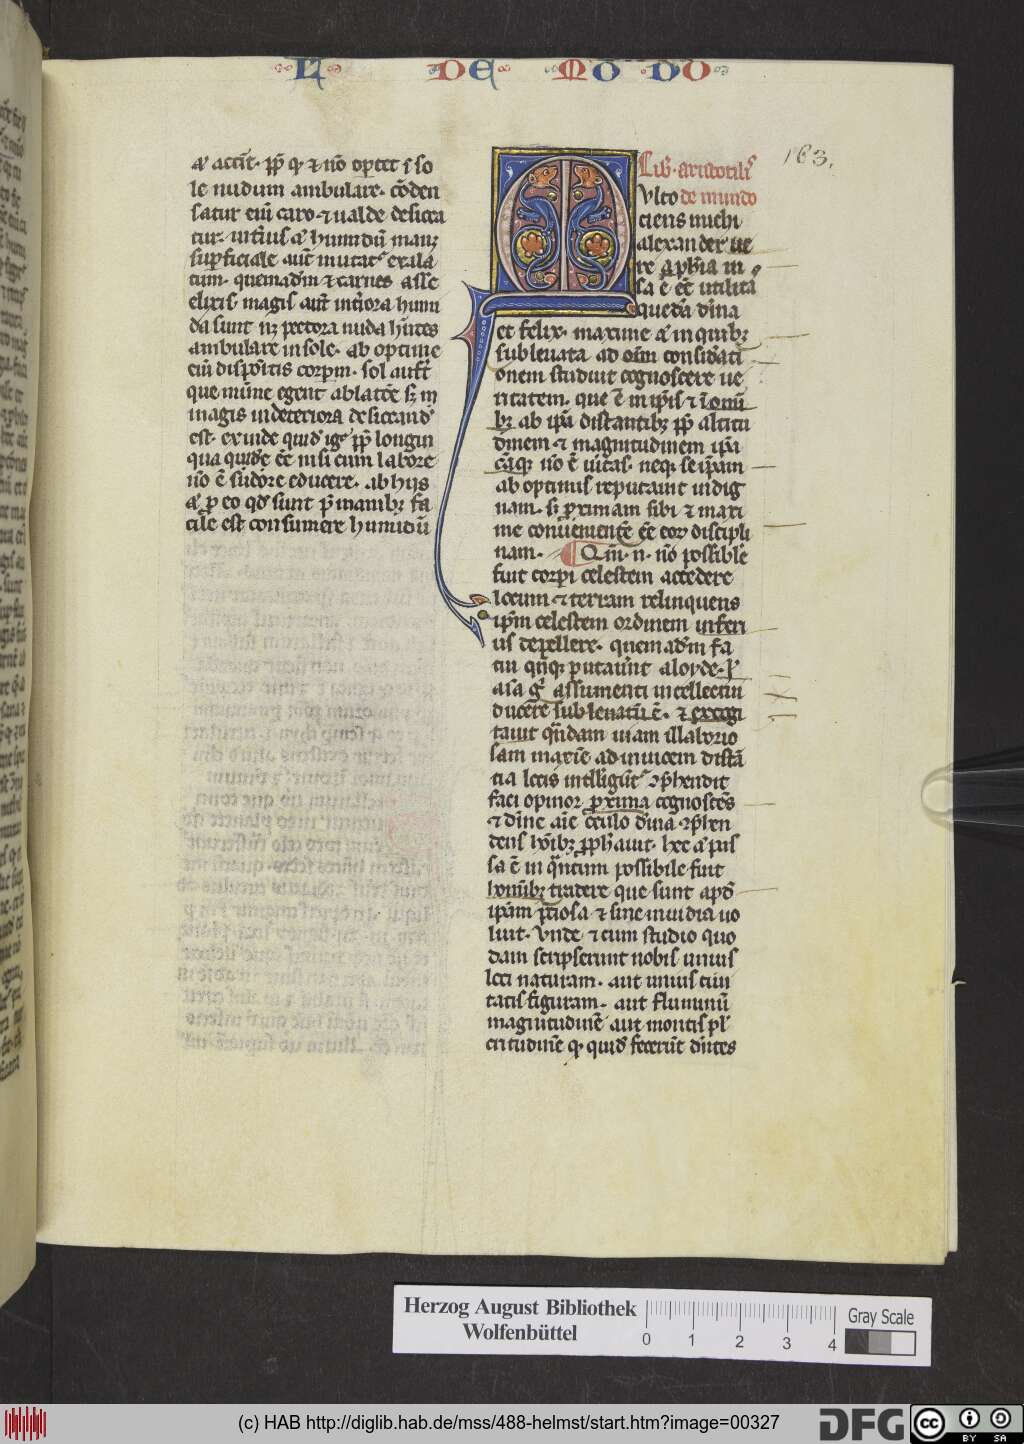 L DE MO DO
163.
ꝙ accit̄. ꝓp̄ ꝙ ⁊ nō oportet ī so
le nudum ambulare. cōden
satur enī caro ⁊ ualde desicca
tur. int̄ius ꝙ humidū manꝫ
suꝑficiale aut̄ mutat᷑ exala
tum. quemadm̄ ⁊ carnes asse
elixis. magis aut̄ int̄iora humi
da sunt nꝫ pectora nuda hn̄tes
ambulare in sole. ab optime
enī dispōitis corꝑm. sol aufert
que mīme egent ablatōe sꝫ in
magis in deteriora desiccand᷑
est. exinde quid᷑ ige ꝓp̄ longin
qua quidē eē nisi cum labore
nō ē sudore educere. ab hijs
ꝙ ꝑ eo qd̓ sunt p̄ manibꝫ fa
cile est consumere humidū
Lib̓. aristotilis
de mundo
Multo
ciens michi
alexander ue
re ꝙ ph̄ia in
sa ē eē utilita
quedā diuīa
et felix. maxime ꝙ in quibꝫ
subleuata ad oīm considati
onem studuit cognoscere ue
ritatem. que ē in ip̄is ⁊ ī omī
bꝫ ab ip̄a distantibꝫ ꝓp̄ altitu
dinem ⁊ magnitudinem ip̄a
nō ē ueritas. neqꝫ seip̄am
ab optimis reputauit indig
nam. sꝫ ꝓximam sibi ⁊ maxi
me conuenientē eē eoꝝ discipli
nam. Qm̄. n. nō possibile
fuit corpi celestem accedere
locum ⁊ terram relinquens
ip̄m celestem ordinem inferi
us depellere. quemadm̄ fa
tui qn̄qꝫ putauīt aloyde. ꝑ
aīa gͥ assumenti intellectū
ducere subleuatū ē. ⁊ excogi
tauit qn̄dam uiam illaborio
sam maxīe ad inuicem distā
tia locis intelligūt ꝯp̄hendit
faci opinor ꝓxima cognoscēs
⁊ diīne aīe oculo diuīa ꝯp̄hen
dens hoībꝫ ꝓph̄auit. hec ꝙ pas
sa ē in qn̄tum possibile fuit
hominibꝫ tradere que sunt apd̓
ip̄am p̄ciosa ⁊ sine inuidia uo
luit. Vnde ⁊ cum studio quo
dam scripserunt nobis unius
loci naturam. aut unius ciui
tatis figuram. aut fluminū
magnitudinē aut montis pl̓
critudinē ꝙ quid᷑ fecerūt dn̄tes
Herzog August Bibliothek
Wolfenbüttel
0 1 2 3 4
Gray Scale
(c) HAB http://diglib.hab.de/mss/488-helmst/start.htm?image=00327
DFG
cc
BY SA